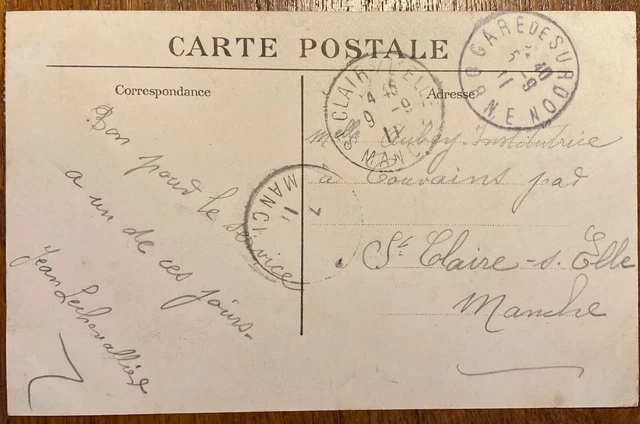 CARTE POSTALE
Correspondance
Adresse
Bon pour le service
a un de ces jours-
Jean Lechevallier
Melle Aubey Institutrice
à Couvains par
St. Claire-s. Elle
Manche
GARE DE SOURDON
5 40
11 -9
ST CLAIR L'ELLE
9 -9
11
MANCHE
MANCHE